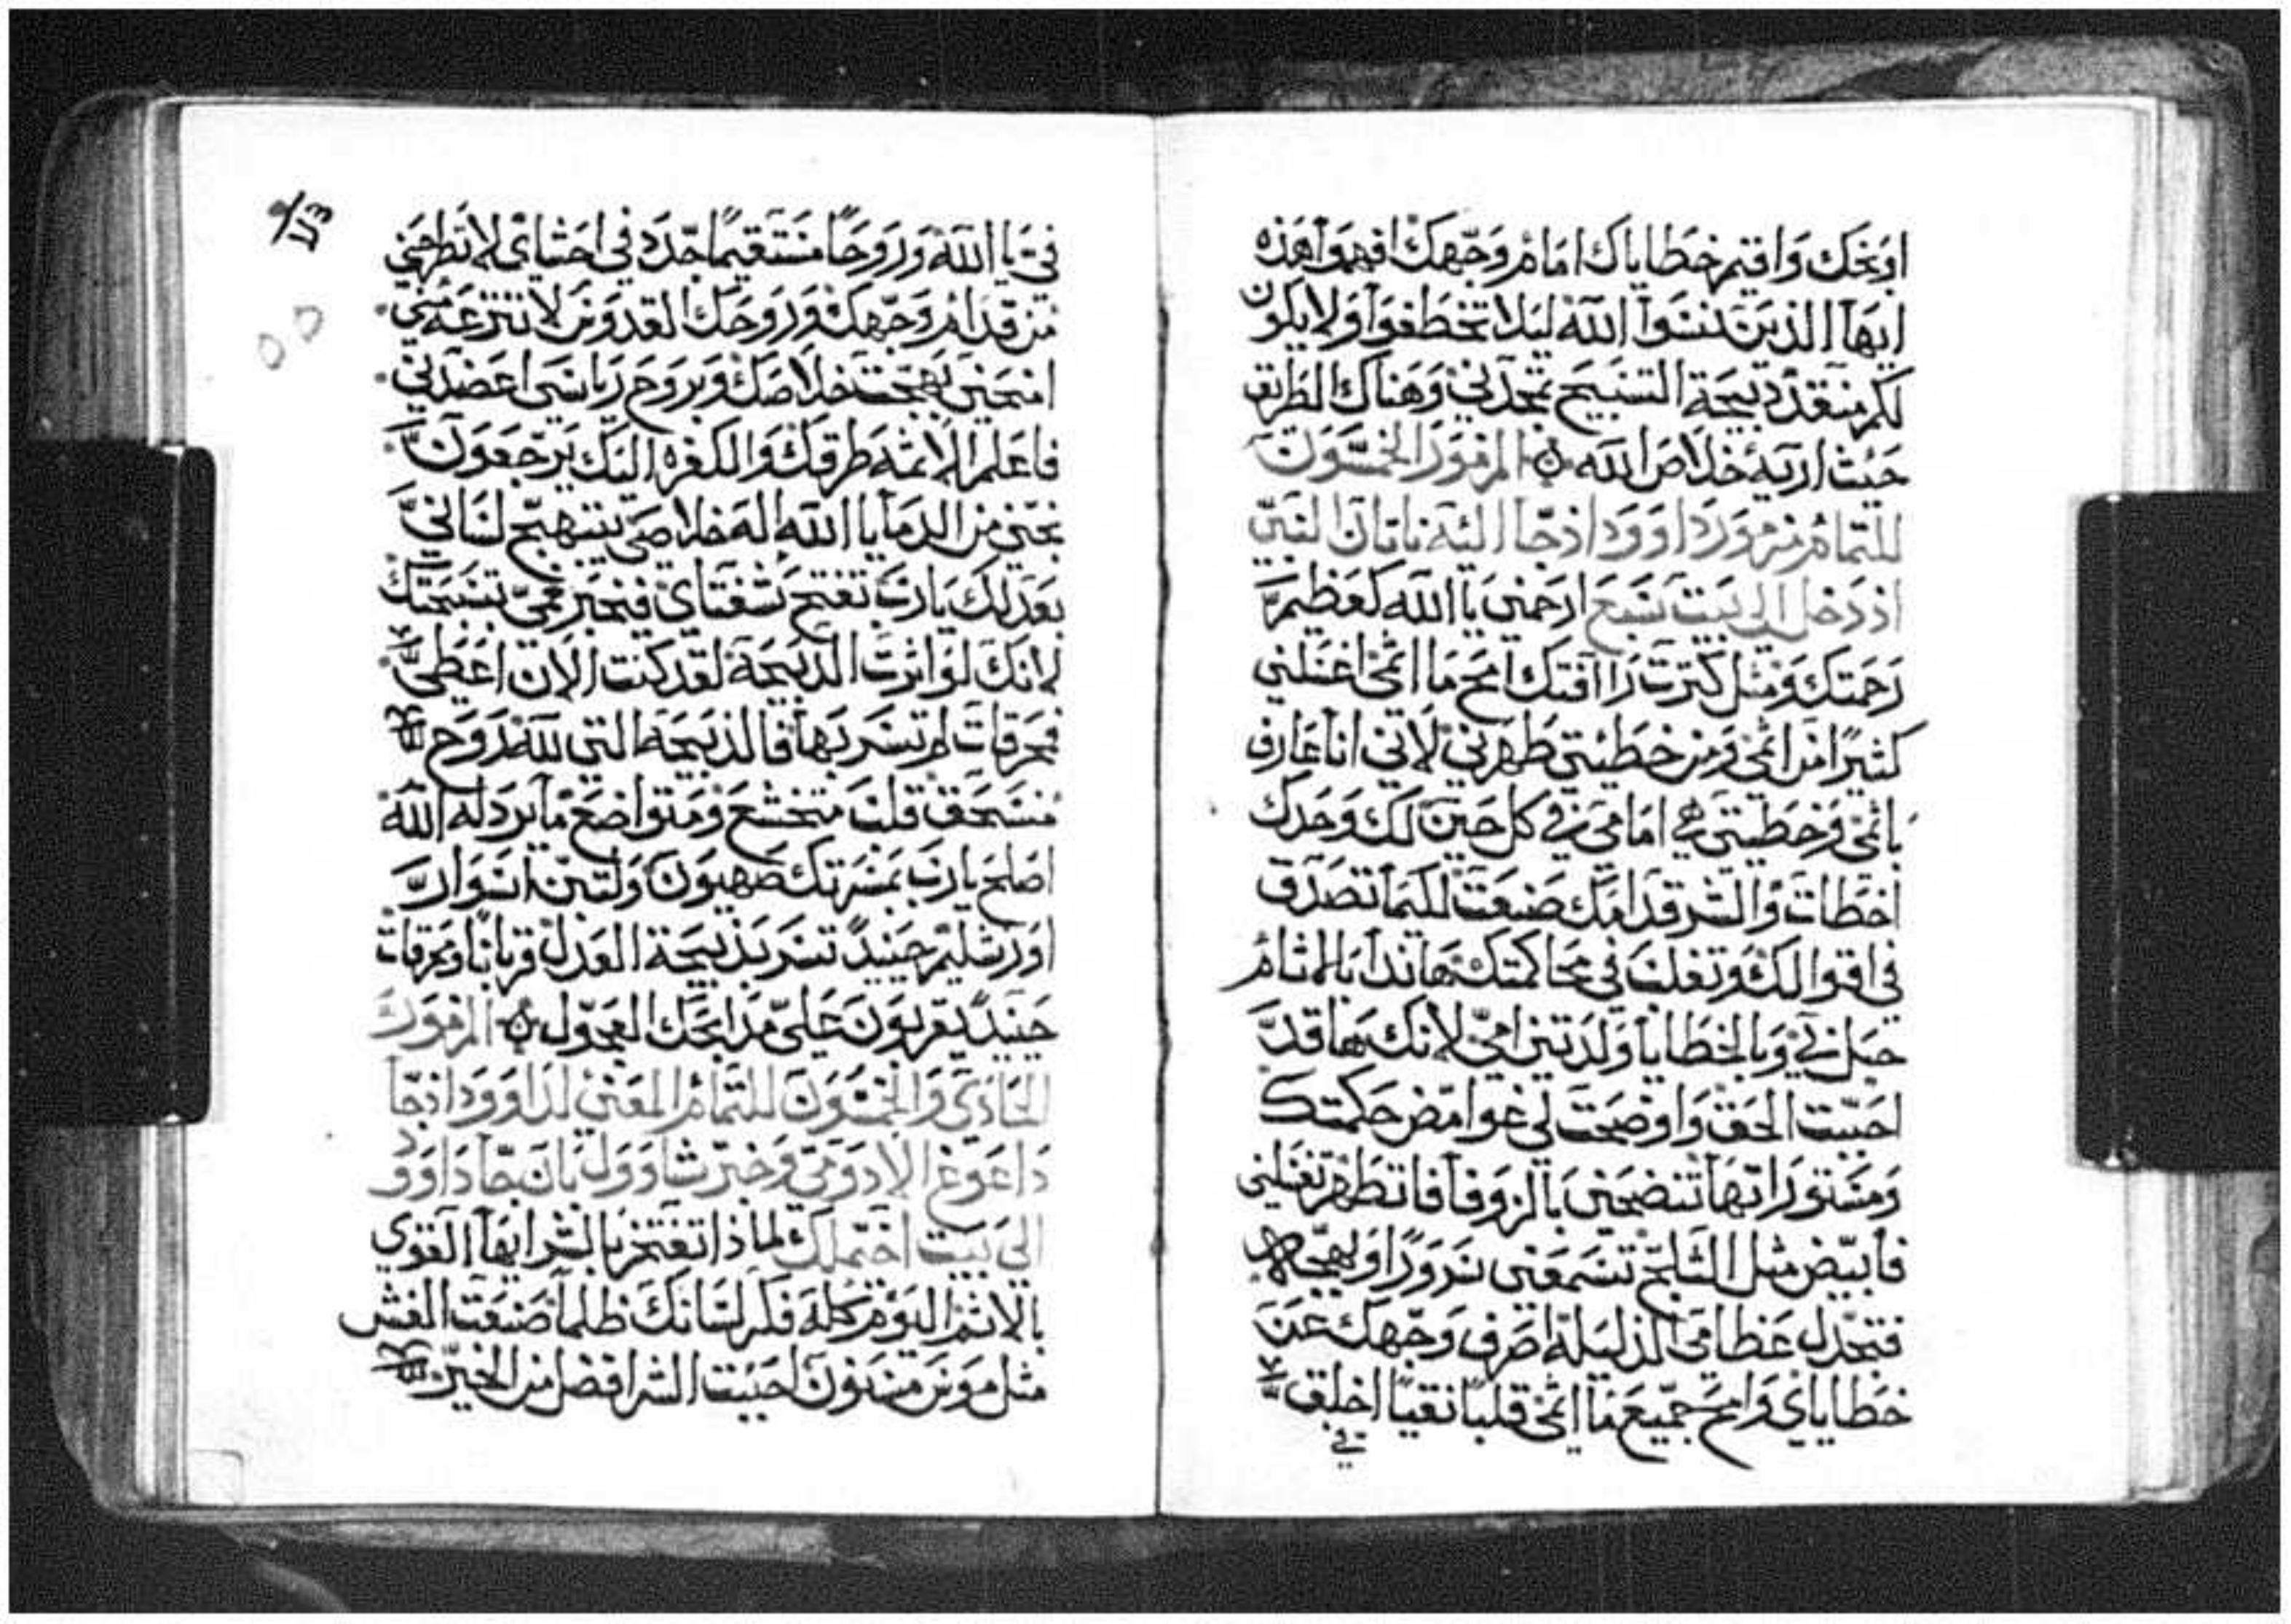 اوبخك واقيم خطاياك امام وجهك افهموا هذه
ايها الذين نسوا الله ليلا تخطفوا ولا يكون
لكم منقذ ذبيحة التسبيح تمجدني وهناك الطريق
حيث اريه خلاص الله المزمور الخمسون
للتمام مزمور داوود اذ جا اليه ناتان النبي
اذ دخل الي بيت شبع ارحمني يا الله كعظيم
رحمتك ومثل كثرت راافتك امح مااثمي اغسلني
كثيرًا من اثمي ومن خطيتي طهرني لاني انا عارف
باثمي وخطيتي هي امامي في كل حين لك وحدك
اخطات والشر قدامك صنعت لكيما تصدق
في اقوالك وتغلب في محاكمتك هانذا بالاثام
حبل بي وبالخطايا ولدتني امي لانك ها قد
احببت الحق واوضحت لي غوامض حكمتك
ومستوراتها تنضحني بالزوفا فاتطهر تغسلني
فابيض مثل الثلج تسمعني سرورًا وبهجه
فتجدل عظامي الذليله اصرف وجهك عن
خطاياي وامح جميع مااثمي قلبًا نقيًا اخلق
في
في يا الله وروحًا مستقيمًا جدد في احشاي لا تطرحني
من قدام وجهك وروحك القدوس لا تنتزعه مني
امنحني بهجت خلاصك وبروح رياسي اعضدني
فاعلم الاثمه طرقك والكفره اليك يرجعون
نجني من الدما يا الله اله خلاصي يبتهج لساني
بعدلك يارب تفتح شفتاي فيخبر فمي بتسبحتك
لانك لو اثرت الذبيحة لقد كنت الان اعطي
فمحرقات لم تسر بها فالذبيحة التي لله روح
منسحق قلب متخشع ومتواضع ما يرد له الله
اصلح يارب بمسرتك صهيون ولتبن اسوار
اورشليم حينيدً تسر بذبيحة العدل قربانًا ومحرقات
حينيدً يقربون علي مذابحك العجول المزمور
الحادي والخمسون للتمام المعني لداوود اذ جا
داعوغ الادومي وخبر شاوول بان جا داوود
الي بيت اخيملك لماذا تفتخر بالشر ايها القوي
بالاثم اليوم كله فكر لسانك ظلمًا صنعت الغش
مثل موس مسنون احببت الشر افضل من الخير